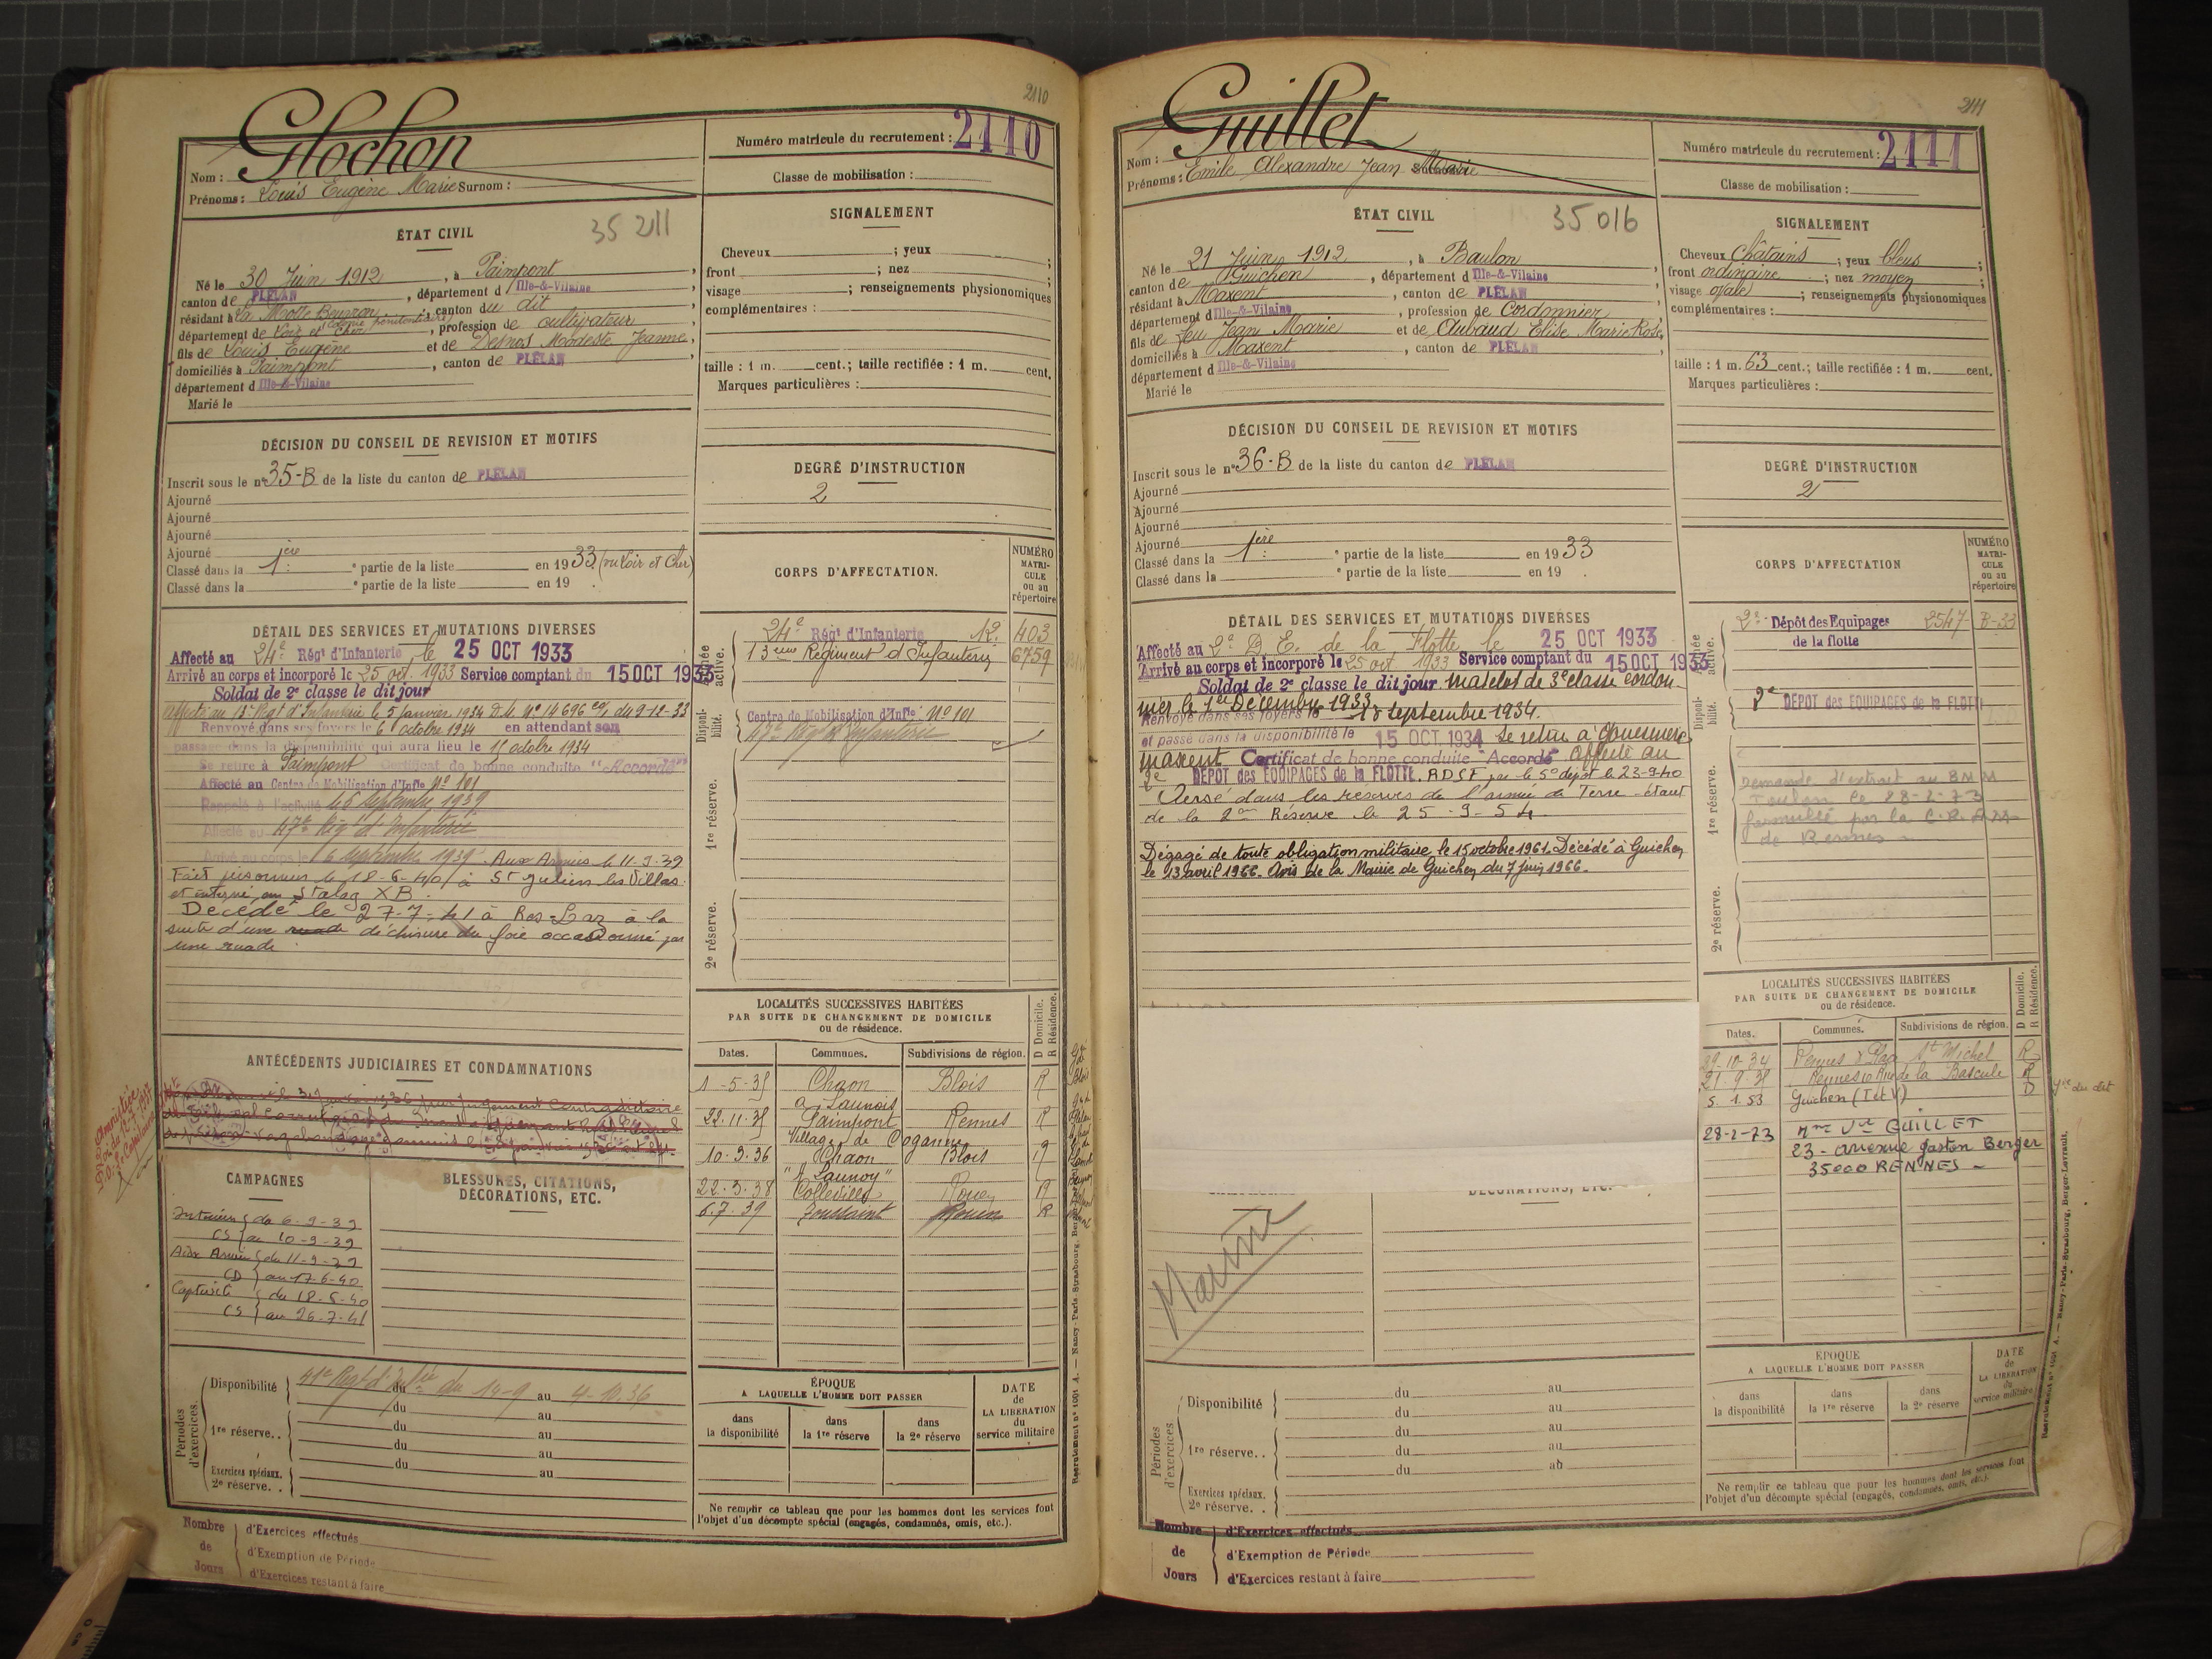 2110
Glochon
Nom :
Prénoms : Louis Eugène Marie Surnom :
Numéro matricule du recrutement : 2110
Classe de mobilisation :
ÉTAT CIVIL
35 211
Né le 30 Juin 1912, à Paimpont,
canton de PLÉLAN, département d Ille-&-Vilaine
résidant à La Motte Beuvron, canton du dit
(Colonie pénitentiaire)
département de Loir et Cher, profession de cultivateur,
fils de Louis Eugène et de Desnos Modeste Jeanne,
domiciliés à Paimpont, canton de PLÉLAN
département d Ille-&-Vilaine
Marié le
SIGNALEMENT
Cheveux ; yeux ;
front ; nez ;
visage ; renseignements physionomiques
complémentaires :
taille : 1 m. cent.; taille rectifiée : 1 m. cent.
Marques particulières :
DÉCISION DU CONSEIL DE REVISION ET MOTIFS
Inscrit sous le n° 35-B de la liste du canton de PLÉLAN
Ajourné
Ajourné
Ajourné
Ajourné
Classé dans la 1ère partie de la liste en 1933 (vu Loir et Cher)
Classé dans la e partie de la liste en 19 .
DEGRÉ D'INSTRUCTION
2
CORPS D'AFFECTATION.
NUMÉRO MATRICULE ou au répertoire
Armée active.
24e Régt d'Infanterie 12. 403
13ème Régiment d'Infanterie 6759
Disponibilité.
Centre de Mobilisation d'Infie N° 101
47e Régt d'Infanterie
1re réserve.
2e réserve.
DÉTAIL DES SERVICES ET MUTATIONS DIVERSES
Affecté au 24e Régt d'Infanterie le 25 OCT 1933
Arrivé au corps et incorporé le 25 oct. 1933 Service comptant du 15 OCT 1933
Soldat de 2e classe le dit jour
affecté au 13e Régt d'Infanterie le 5 Janvier 1934 D.M. N° 14696 du 9-12-33
Renvoyé dans ses foyers le 6 octobre 1934 en attendant son
passage dans la disponibilité qui aura lieu le 15 octobre 1934
Se retire à Paimpont Certificat de bonne conduite "Accordé"
Affecté au Centre de Mobilisation d'Infie N° 101
Rappelé à l'activité le 6 septembre 1939
Affecté au 47e Régt d'Infanterie
Arrivé au corps le 6 septembre 1939. Aux Armées le 11-9-39
Fait prisonnier le 18-6-40 à St Julien les Villas
et interné au Stalag XB.
Décédé le 27-7-41 à Ros-Laz à la
suite d'une ruade déchirure du foie occasionné par
une ruade
LOCALITÉS SUCCESSIVES HABITÉES
PAR SUITE DE CHANGEMENT DE DOMICILE
ou de résidence.
D Domicile. R Résidence.
Dates. Communes. Subdivisions de région.
1-5-35 Chaon Blois R
a Launois
22.11.35 Paimpont Rennes R
Village de Coganne
10-9.36 Chaon Blois R
"Launoy"
22-3-38 Colleville Rouen R
6.7.39 Toussaint Rouen R
ANTÉCÉDENTS JUDICIAIRES ET CONDAMNATIONS
Amnistié
CAMPAGNES
Intérieur du 6-9-39
CS au 10-9-39
Aux Armées du 11-9-39
CD au 17-6-40
Captivité du 18-6-40
CS au 26-7-41
BLESSURES, CITATIONS, DÉCORATIONS, ETC.
Périodes d'exercices.
Disponibilité 41e Régt d'Infie du 14-9 au 4-10.36
du au
1re réserve. . du au
du au
Exercices spéciaux. 2e réserve. . du au
ÉPOQUE
A LAQUELLE L'HOMME DOIT PASSER
dans la disponibilité dans la 1re réserve dans la 2e réserve
DATE de LA LIBÉRATION du service militaire
Ne remplir ce tableau que pour les hommes dont les services font
l'objet d'un décompte spécial (engagés, condamnés, omis, etc.).
Nombre de Jours
d'Exercices effectués
d'Exemption de Période
d'Exercices restant à faire
Recrutement n° 1001 A. — Nancy-Paris-Strasbourg, Berger-Levrault.
2111
Guillet
Nom :
Prénoms : Emile Alexandre Jean Marie
Numéro matricule du recrutement : 2111
Classe de mobilisation :
ÉTAT CIVIL
35 016
Né le 21 Juin 1912, à Baulon,
canton de Guichen, département d Ille-&-Vilaine
résidant à Maxent, canton de PLÉLAN
département d Ille-&-Vilaine, profession de Cordonnier,
fils de feu Jean Marie et de Aubaud Elise Marie Rose,
domiciliés à Maxent, canton de PLÉLAN
département d Ille-&-Vilaine
Marié le
SIGNALEMENT
Cheveux Châtains ; yeux bleus ;
front ordinaire ; nez moyen ;
visage ovale ; renseignements physionomiques
complémentaires :
taille : 1 m. 63 cent.; taille rectifiée : 1 m. cent.
Marques particulières :
DÉCISION DU CONSEIL DE REVISION ET MOTIFS
Inscrit sous le n° 36-B de la liste du canton de PLÉLAN
Ajourné
Ajourné
Ajourné
Ajourné
Classé dans la 1ère partie de la liste en 1933
Classé dans la e partie de la liste en 19 .
DEGRÉ D'INSTRUCTION
2
CORPS D'AFFECTATION
NUMÉRO MATRICULE ou au répertoire
Armée active.
2e Dépôt des Equipages 2547 B-33
de la flotte
Disponibilité.
2e DÉPOT des EQUIPAGES de la FLOTTE
1re réserve.
Demande d'extrait au BMM
Toulon le 28-2-73
formulée par la C.R.
de Rennes -
2e réserve.
DÉTAIL DES SERVICES ET MUTATIONS DIVERSES
Affecté au 2e D. E. de la Flotte le 25 OCT 1933
Arrivé au corps et incorporé le 25 oct. 1933 Service comptant du 15 OCT 1933
Soldat de 2e classe le dit jour. Matelot de 3e classe cordon-
nier le 1er Décembre 1933
Renvoyé dans ses foyers le 18 septembre 1934.
et passé dans la disponibilité le 15 OCT. 1934 Se retire à
Maxent Certificat de bonne conduite "Accordé" Affecté au
2e DÉPOT des EQUIPAGES de la FLOTTE. RDSF par le 5e dépôt le 23-9-40
Versé dans les réserves de l'armée de Terre - étant
de la 2ème Réserve le 25-9-54.
Dégagé de toute obligation militaire le 15 octobre 1961. Décédé à Guichen
le 13 avril 1966. Avis de la Mairie de Guichen du 7 juin 1966.
LOCALITÉS SUCCESSIVES HABITÉES
PAR SUITE DE CHANGEMENT DE DOMICILE
ou de résidence.
D Domicile. R Résidence.
Dates. Communes. Subdivisions de région.
29-10-34 Rennes 8 Place St Michel R
21-9-38 Rennes 10 Rue de la Bascule R
5.1.53 Guichen (I et V) D
28-2-73 Mme Vve GUILLET
23 - avenue Gaston Berger
35000 RENNES -
DÉCORATIONS, ETC.
Marine
Périodes d'exercices.
Disponibilité du au
du au
1re réserve. . du au
du au
Exercices spéciaux. 2e réserve. . du au
ÉPOQUE
A LAQUELLE L'HOMME DOIT PASSER
dans la disponibilité dans la 1re réserve dans la 2e réserve
DATE de LA LIBÉRATION du service militaire
Ne remplir ce tableau que pour les hommes dont les services font
l'objet d'un décompte spécial (engagés, condamnés, omis, etc.).
Nombre de Jours
d'Exercices effectués
d'Exemption de Période
d'Exercices restant à faire
Recrutement n° 1001 A. — Nancy-Paris-Strasbourg, Berger-Levrault.